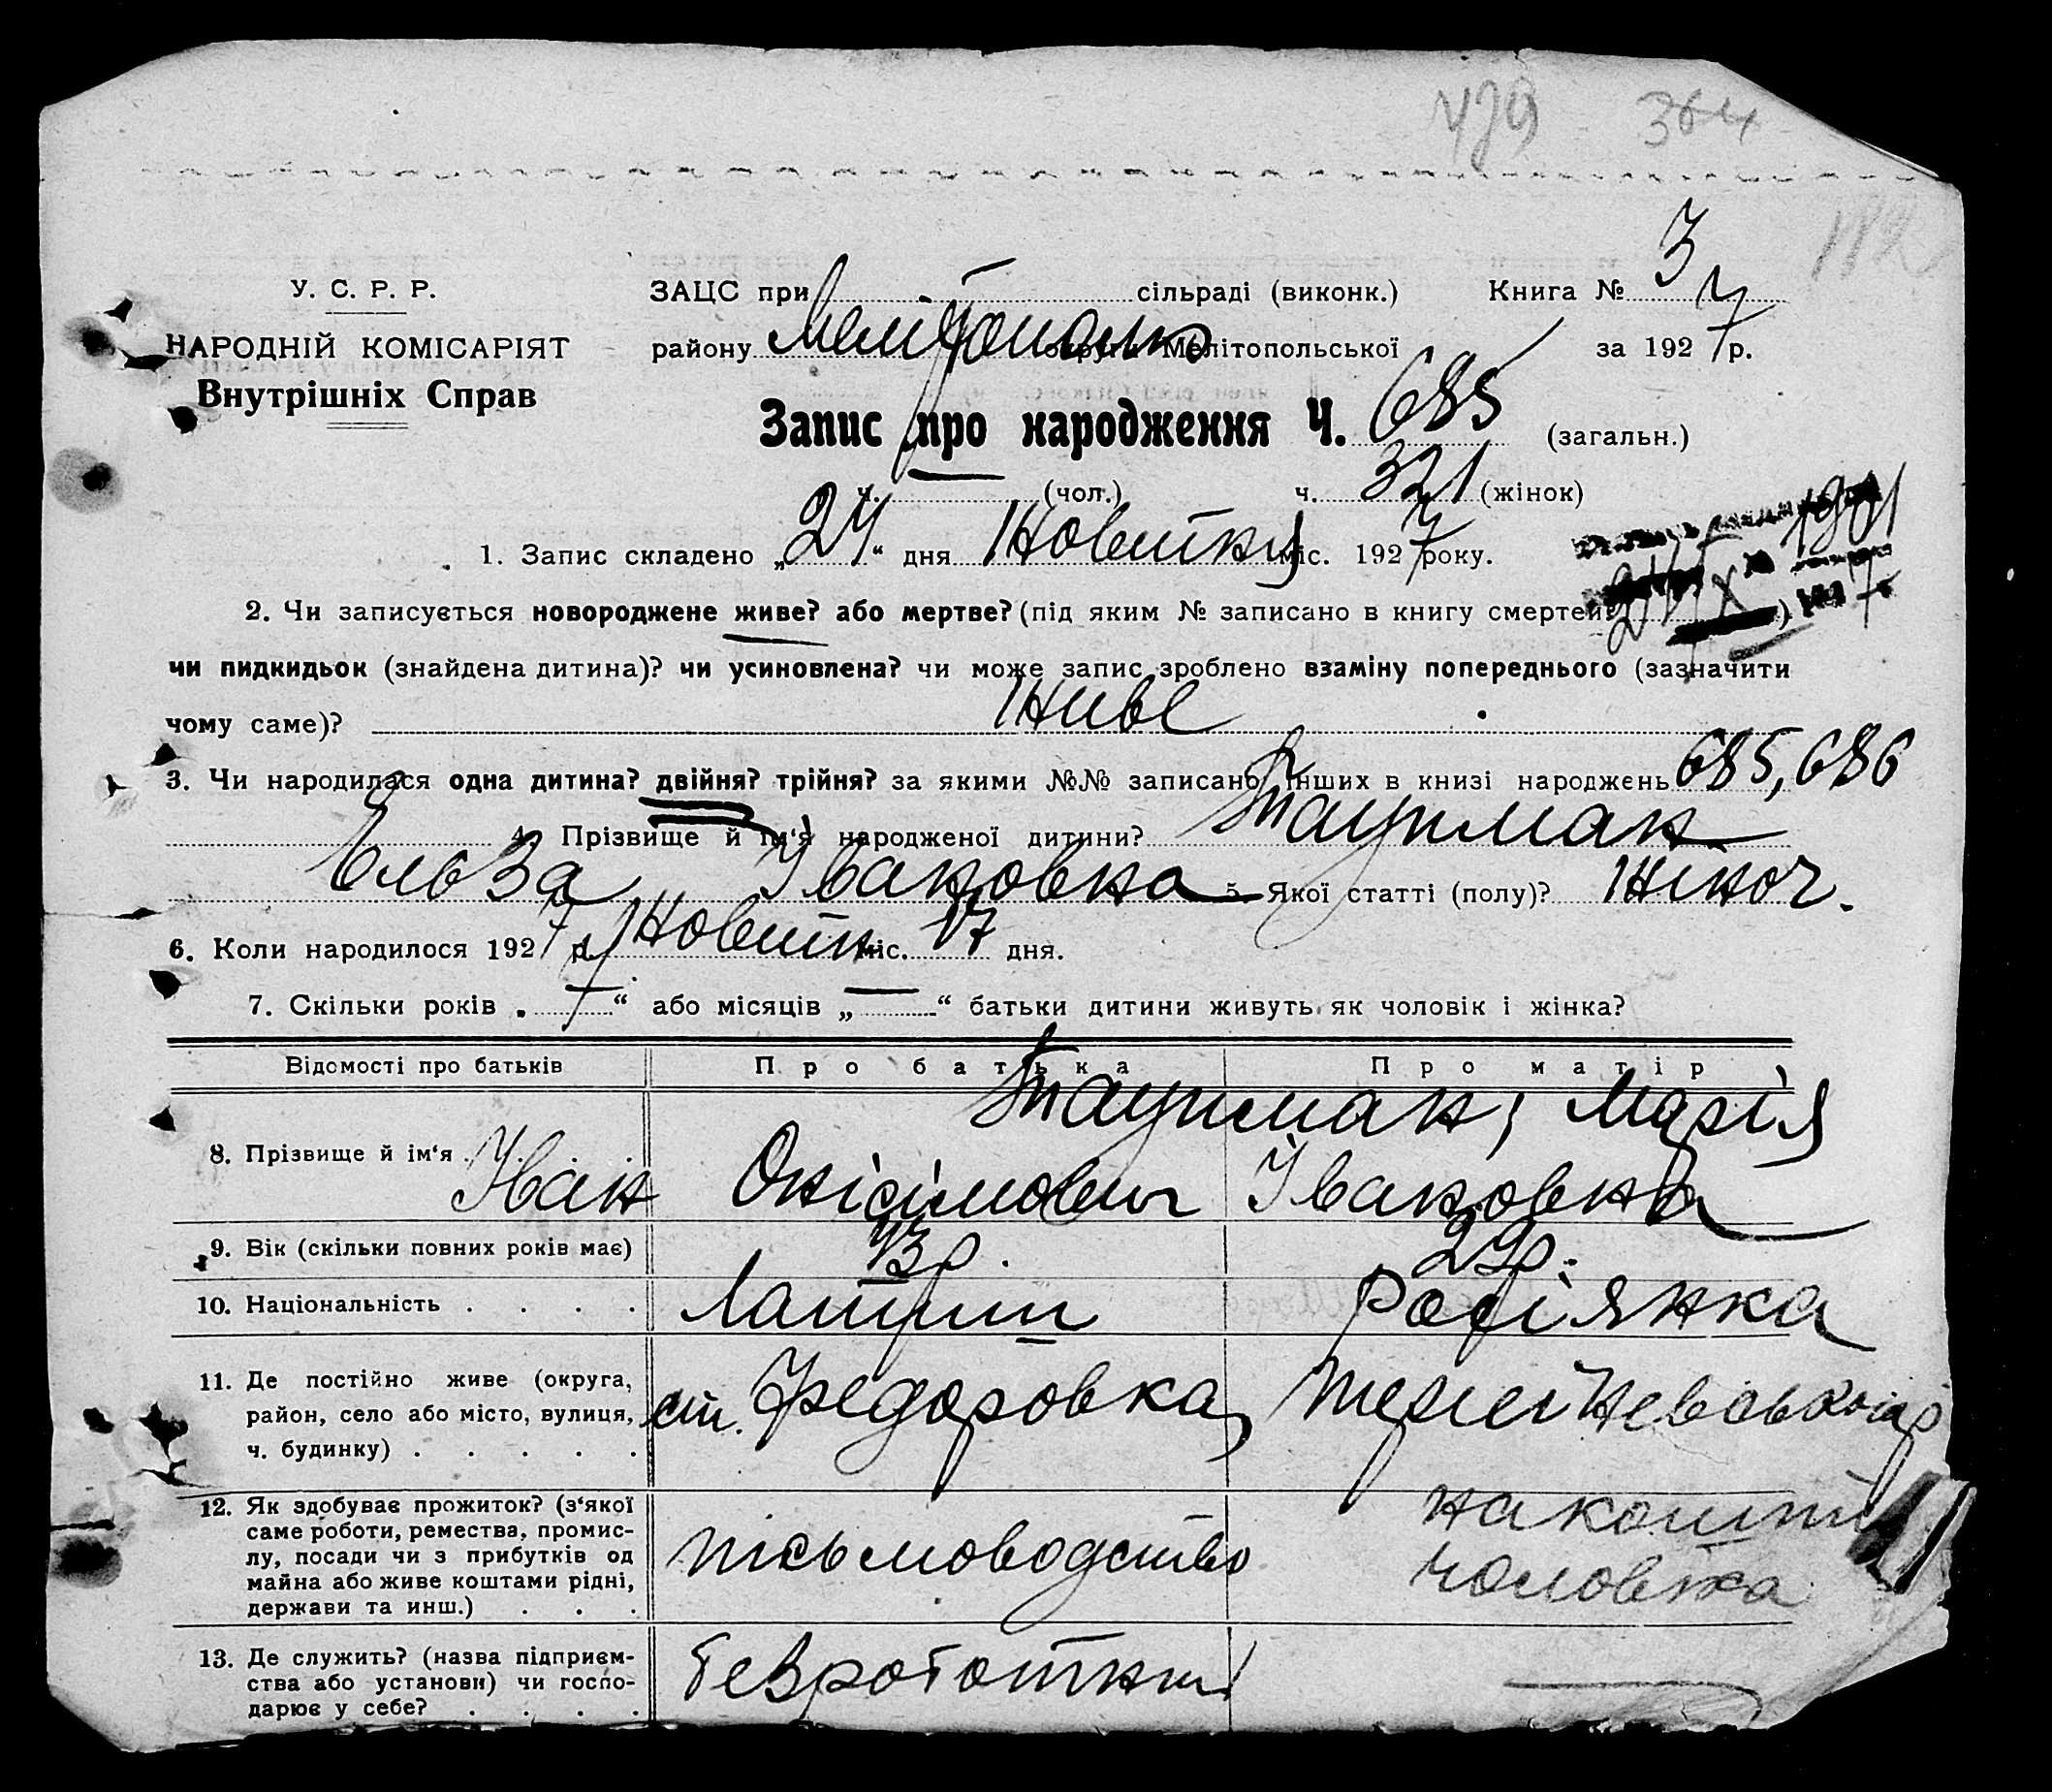 479 364
182
У. С. Р. Р.
НАРОДНІЙ КОМІСАРІЯТ
Внутрішніх Справ
ЗАЦС при сільраді (виконк.) Книга № 3
району Мелітополько округи Мелітопольської за 1927 р.
Запис про народження Ч. 685 (загальн.)
ч. — (чол.) ч. 321 (жінок)
1. Запис складено „24“ дня Жовтня міс. 1927 року.
2. Чи записується новороджене живе? або мертве? (під яким № записано в книгу смертей )
чи пидкидьок (знайдена дитина)? чи усиновлена? чи може запис зроблено взаміну попереднього (зазначити
чому саме)? Живе
3. Чи народилася одна дитина? двійня? трійня? за якими №№ записано інших в книзі народжень 685, 686
4. Прізвище й ім‘я народженої дитини? Таупман
Ельза Івановна 5. Якої статті (полу)? Жіноч.
6. Коли народилося 1927 р. Жовтн міс. 17 дня.
7. Скільки років „7“ або місяців „—“ батьки дитини живуть як чоловік і жінка?
Відомості про батьків Про батька Про матір
Таупман, Марія
8. Прізвище й ім‘я . . . . Іван Онісімович Івановна
9. Вік (скільки повних років має) 43 р. 29 р.
10. Національність . . . . Латиш Росіянка
11. Де постійно живе (округа,
район, село або місто, вулиця,
ч. будинку) . . . . .
ст. Федоровка,
12. Як здобуває прожиток? (з‘якої
саме роботи, ремества, промис-
лу, посади чи з прибутків од
майна або живе коштами рідні,
держави та инш.) . . .
пісьмоводство
на кошти
чоловіка
13. Де служить? (назва підприєм-
ства або установи) чи госпо-
дарює у себе? . . . .